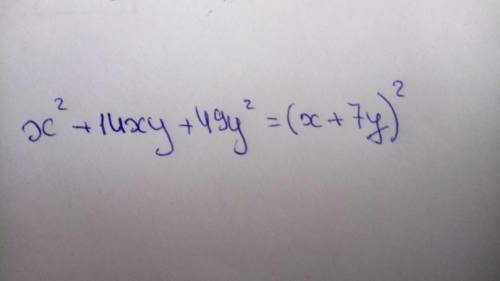 x² + 14xy + 49y² = (x + 7y)²